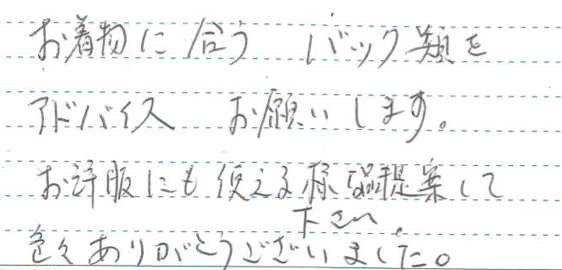 お着物に合う バック類を
アドバイス お願いします。
お洋服にも使える様な品提案して
下さい。
色々ありがとうございました。